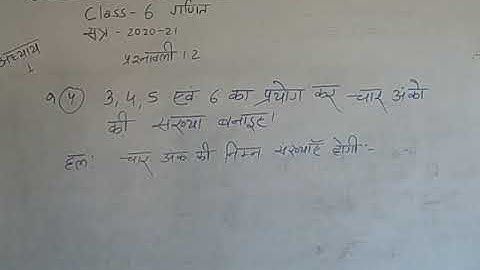 Class- 6 गणित
सत्र - 2020-21
अध्याय
1
प्रश्नावली 1.2
प्र 4 3, 4, 5 एवं 6 का प्रयोग कर चार अंको
की संख्या बनाइए।
हल: चार अंक की निम्न संख्याएँ होगी:-